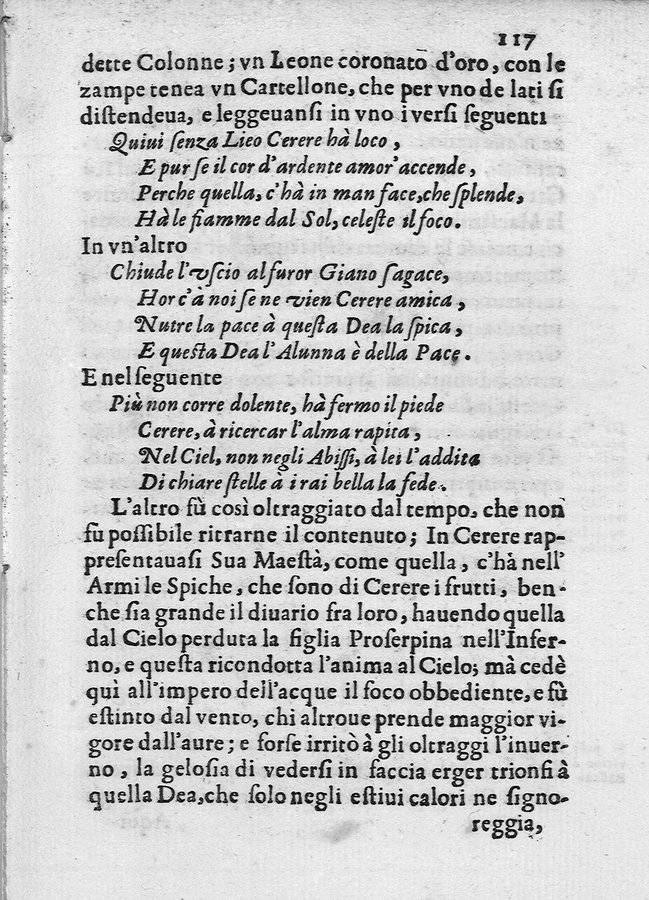 117
dette Colonne; vn Leone coronato d'oro, con le
zampe tenea vn Cartellone, che per vno de lati ſi
diſtendeua, e leggeuanſi in vno i verſi ſeguenti
Quiui ſenza Lieo Cerere hà loco,
E pur ſe il cor d'ardente amor'accende,
Perche quella, c'hà in man face, che ſplende,
Hà le fiamme dal Sol, celeſte il foco.
In vn'altro
Chiude l'vſcio al furor Giano ſagace,
Hor c'à noi ſe ne vien Cerere amica,
Nutre la pace à queſta Dea la ſpica,
E queſta Dea l'Alunna è della Pace.
E nel ſeguente
Più non corre dolente, hà fermo il piede
Cerere, à ricercar l'alma rapita,
Nel Ciel, non negli Abiſſi, à lei l'addita
Di chiare ſtelle à i rai bella la fede.
L'altro fù così oltraggiato dal tempo, che non
fu poſſibile ritrarne il contenuto; In Cerere rap-
preſentauaſi Sua Maeſtà, come quella, c'hà nell'
Armi le Spiche, che ſono di Cerere i frutti, ben-
che ſia grande il diuario fra loro, hauendo quella
dal Cielo perduta la figlia Proſerpina nell'Infer-
no, e queſta ricondotta l'anima al Cielo; mà cedè
quì all'impero dell'acque il foco obbediente, e fù
eſtinto dal vento, chi altroue prende maggior vi-
gore dall'aure; e forſe irritò à gli oltraggi l'inuer-
no, la geloſia di vederſi in faccia erger trionfi à
quella Dea, che ſolo negli eſtiui calori ne ſigno-
reggia,